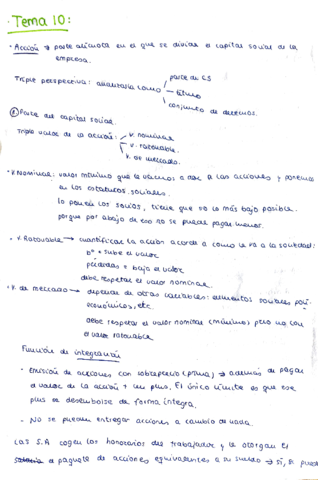 · Tema 10:
· Acción → parte alícuota en el que se divide el capital social de la
empresa.
Triple perspectiva: analizarla como parte de CS
título
conjunto de derechos.
Parte del capital social.
Triple valor de la acción: v. nominal
v. razonable.
v. de mercado.
· V. Nominal: valor mínimo que le vamos a dar a las acciones y ponemos
en los estatutos sociales.
lo ponen los socios, tiene que ser lo más bajo posible.
porque por abajo de eso no se puede pagar menor.
- V. Razonable → cuantificar la acción acorde a como le va a la sociedad:
bº → sube el valor
pérdidas → baja el valor
debe respetar el valor nominal
· V. de mercado → depende de otras variables: elementos sociales, polí-
económicos, etc
debe respetar el valor nominal (mínimo) pero no con
el valor razonable
Función de integración
- Emisión de acciones con sobreprecio (prima) → además de pagar
el valor de la acción + un plus. El único límite es que ese
plus se desembolse de forma íntegra.
- No se pueden entregar acciones a cambio de nada.
Las S.A cogen los honorarios del trabajador y le otorgan el
paquete de acciones equivalentes a su sueldo → sí, se puede